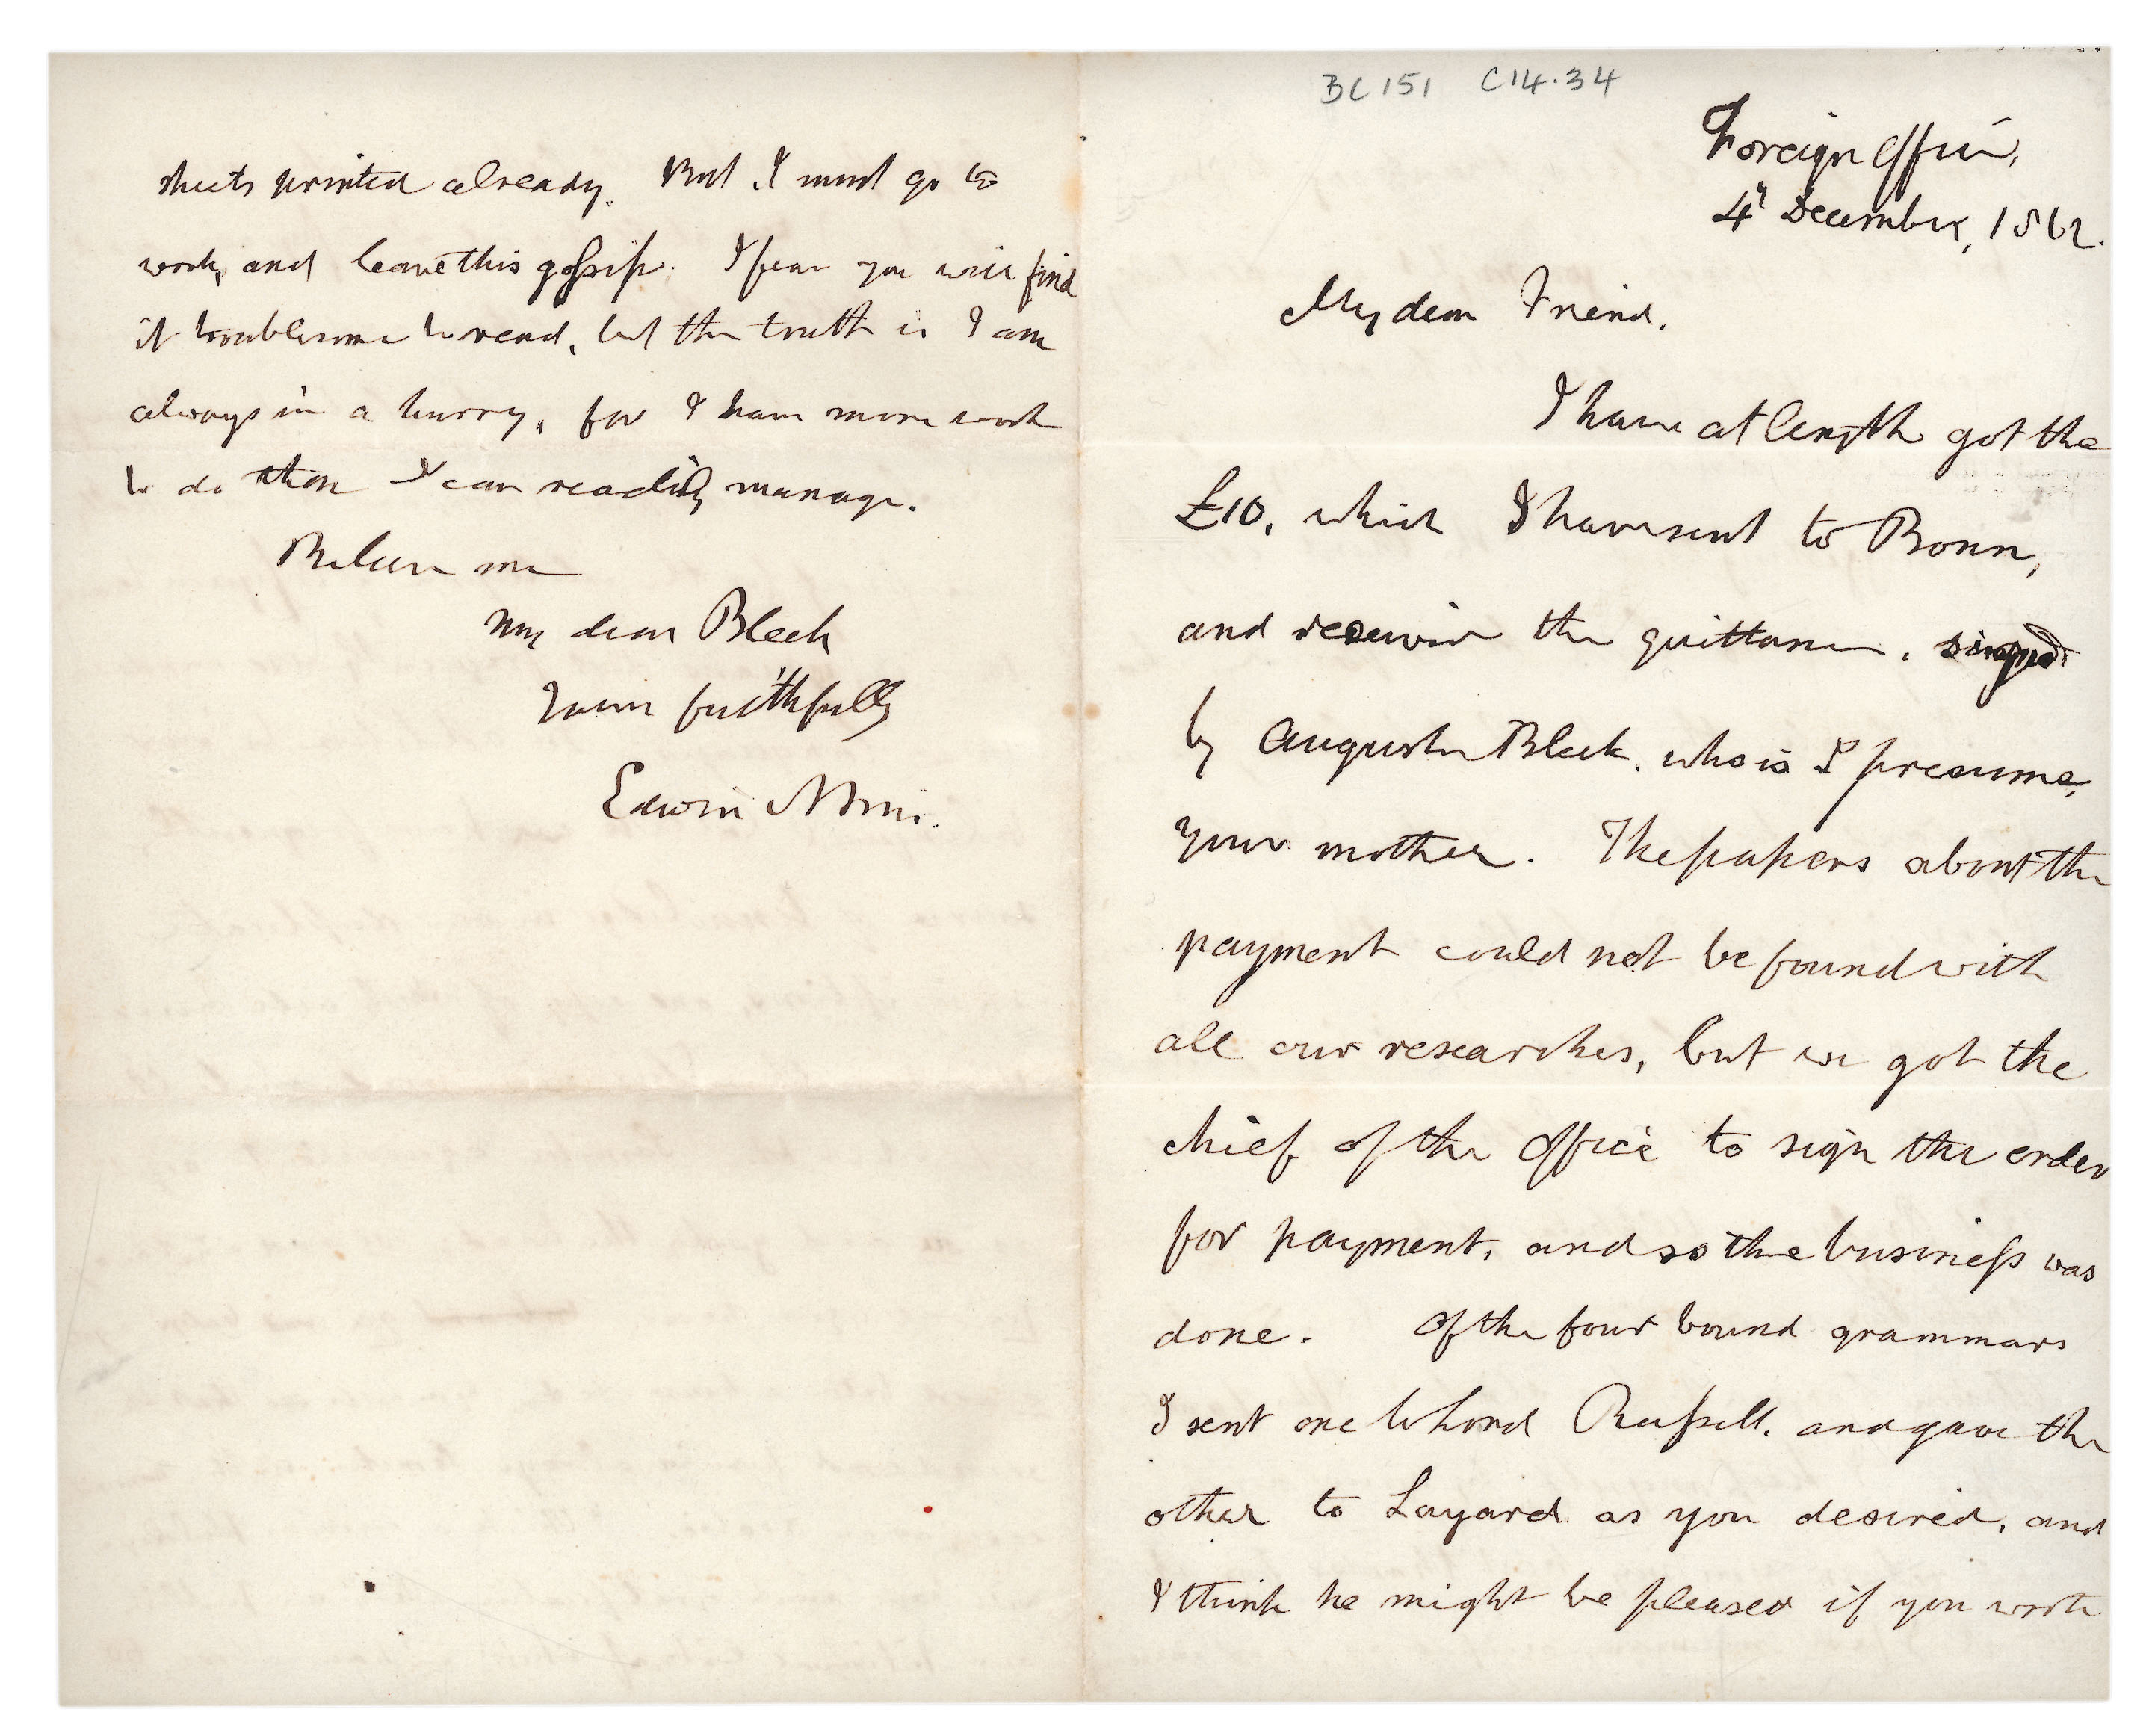 BC 151 C14.34
Foreign Office,
4th December, 1862.
My dear Friend.
I have at length got the
£10, which I have sent to Bonn,
and received the quittance, signed
by Auguste Bleek, who is I presume,
your mother. The papers about the
payment could not be found with
all our researches, but we got the
chief of the Office to sign the order
for payment, and so the business was
done. Of the four bound grammars
I sent one to Lord Russell, and gave the
other to Layard as you desired, and
I think he might be pleased if you wrote
sheets printed already. But I must go to
work, and leave this gossip. I fear you will find
it troublesome to read, but the truth is I am
always in a hurry, for I have more work
to do than I can readily manage.
Believe me
My dear Bleek
Yours faithfully
Edwin Norris.